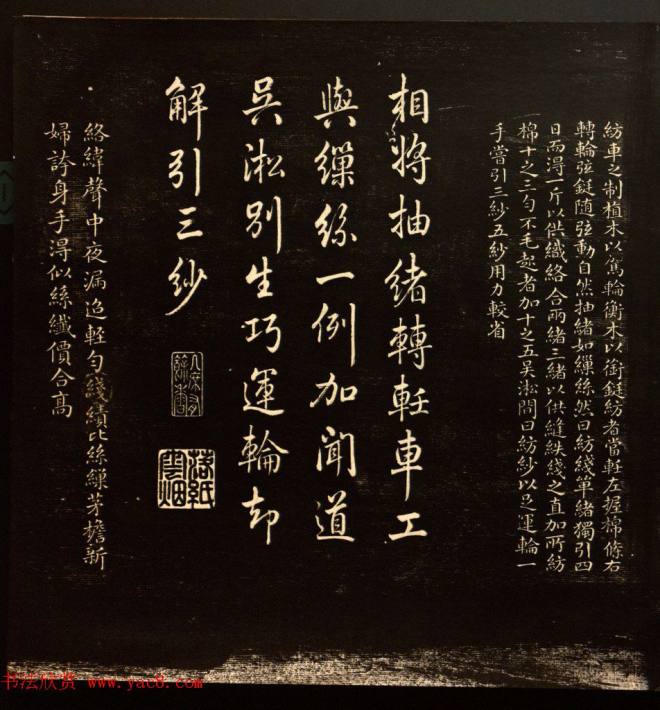 紡車之制植木以駕輪衡木以銜鋌紡者當軠左握棉條右
轉輪弦鋌隨弦動自然抽緒如繅絲然曰紡綫單緒獨引四
日而得一斤以供織絡合兩緒三緒以供縫紩綫之直加所紡
棉十之三勻不毛起者加十之五吳淞間曰紡紗以足運輪一
手嘗引三紗五紗用力較省
相將抽緒轉軠車工
與繅絲一例加聞道
吳淞別生巧運輪却
解引三紗
落紙雲烟
絡緯聲中夜漏迨輕勻綫績比絲繅茅檐新
婦誇身手得似絲纖價合高
书法欣赏 www.yac8.com